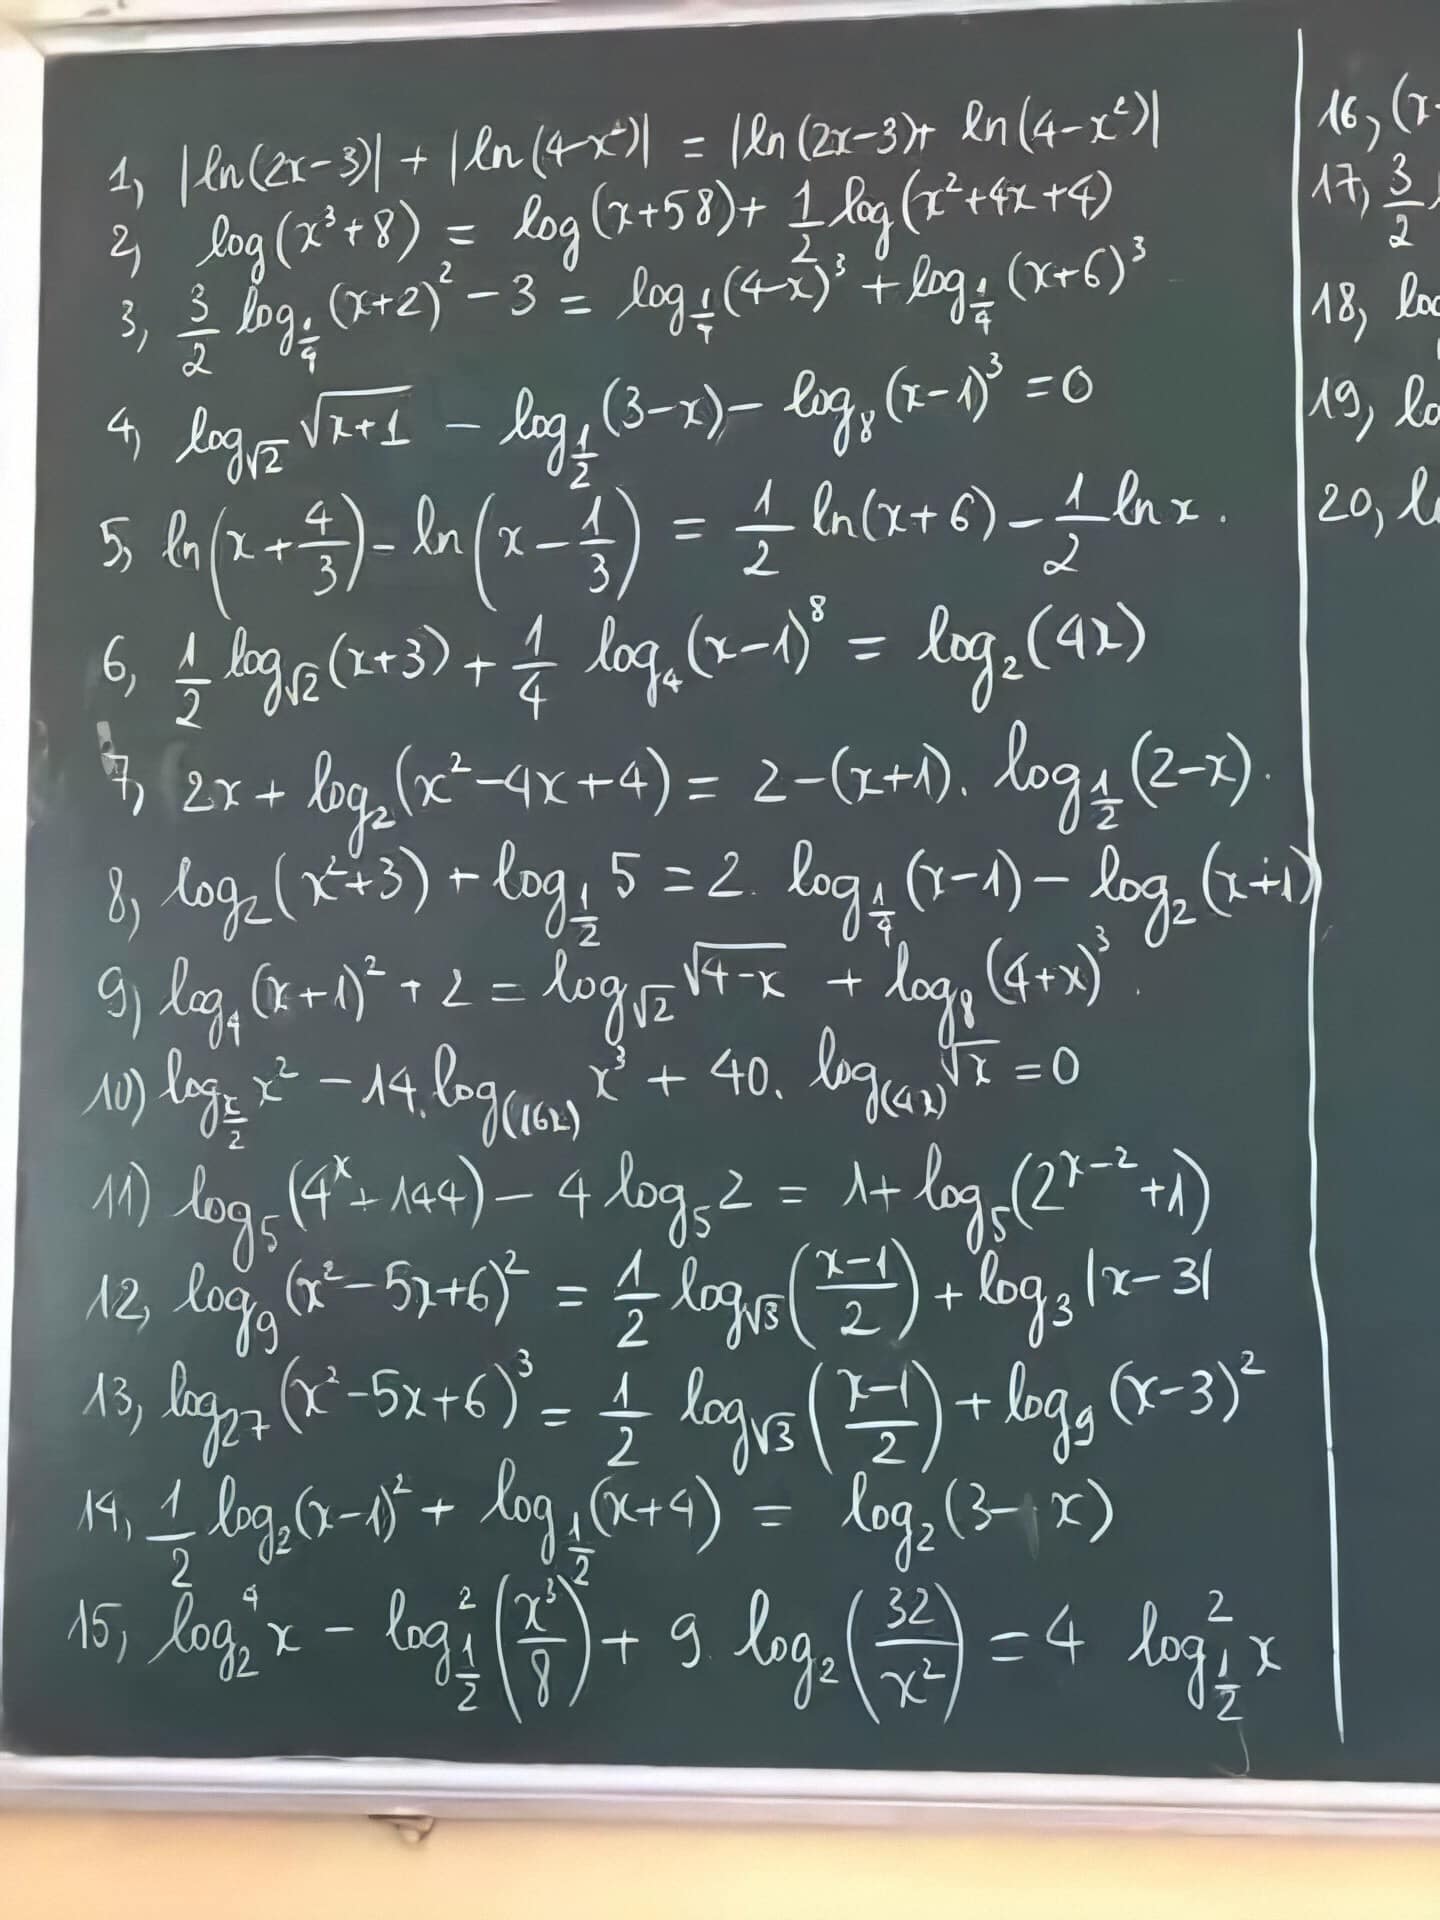 1, |ln(2x-3)| + |ln(4-x²)| = |ln(2x-3)+ ln(4-x²)|
2, log(x³+8) = log(x+58)+ 1/2 log(x²+4x+4)
3, 3/2 log_{1/4}(x+2)² - 3 = log_{1/4}(4-x)³ + log_{1/4}(x+6)³
4, log_{√2} √(x+1) - log_{1/2}(3-x) - log_8(x-1)³ = 0
5, ln(x + 4/3) - ln(x - 1/3) = 1/2 ln(x+6) - 1/2 ln x.
6, 1/2 log_{√2}(x+3) + 1/4 log_4(x-1)⁸ = log_2(4x)
7, 2x + log_2(x²-4x+4) = 2-(x+1). log_{1/2}(2-x).
8, log_2(x²+3) + log_{1/2} 5 = 2. log_{1/4}(x-1) - log_2(x+1)
9) log_4(x+1)² + 2 = log_{√2} √(4-x) + log_8(4+x)³.
10) log_{x/2} x² - 14. log_{(16x)} x³ + 40. log_{(4x)} √x = 0
11) log_5(4^x+144) - 4 log_5 2 = 1+ log_5(2^{x-2}+1)
12, log_9(x²-5x+6)² = 1/2 log_{√3}((x-1)/2) + log_3|x-3|
13, log_27(x²-5x+6)³ = 1/2 log_{√3}((x-1)/2) + log_9(x-3)²
14, 1/2 log_2(x-1)² + log_{1/2}(x+4) = log_2(3-x)
15, log_2⁴ x - log²_{1/2}(x³/8) + 9. log_2(32/x²) = 4 log²_{1/2} x
16, (x-
17, 3/2
18, lo
19, lo
20, l